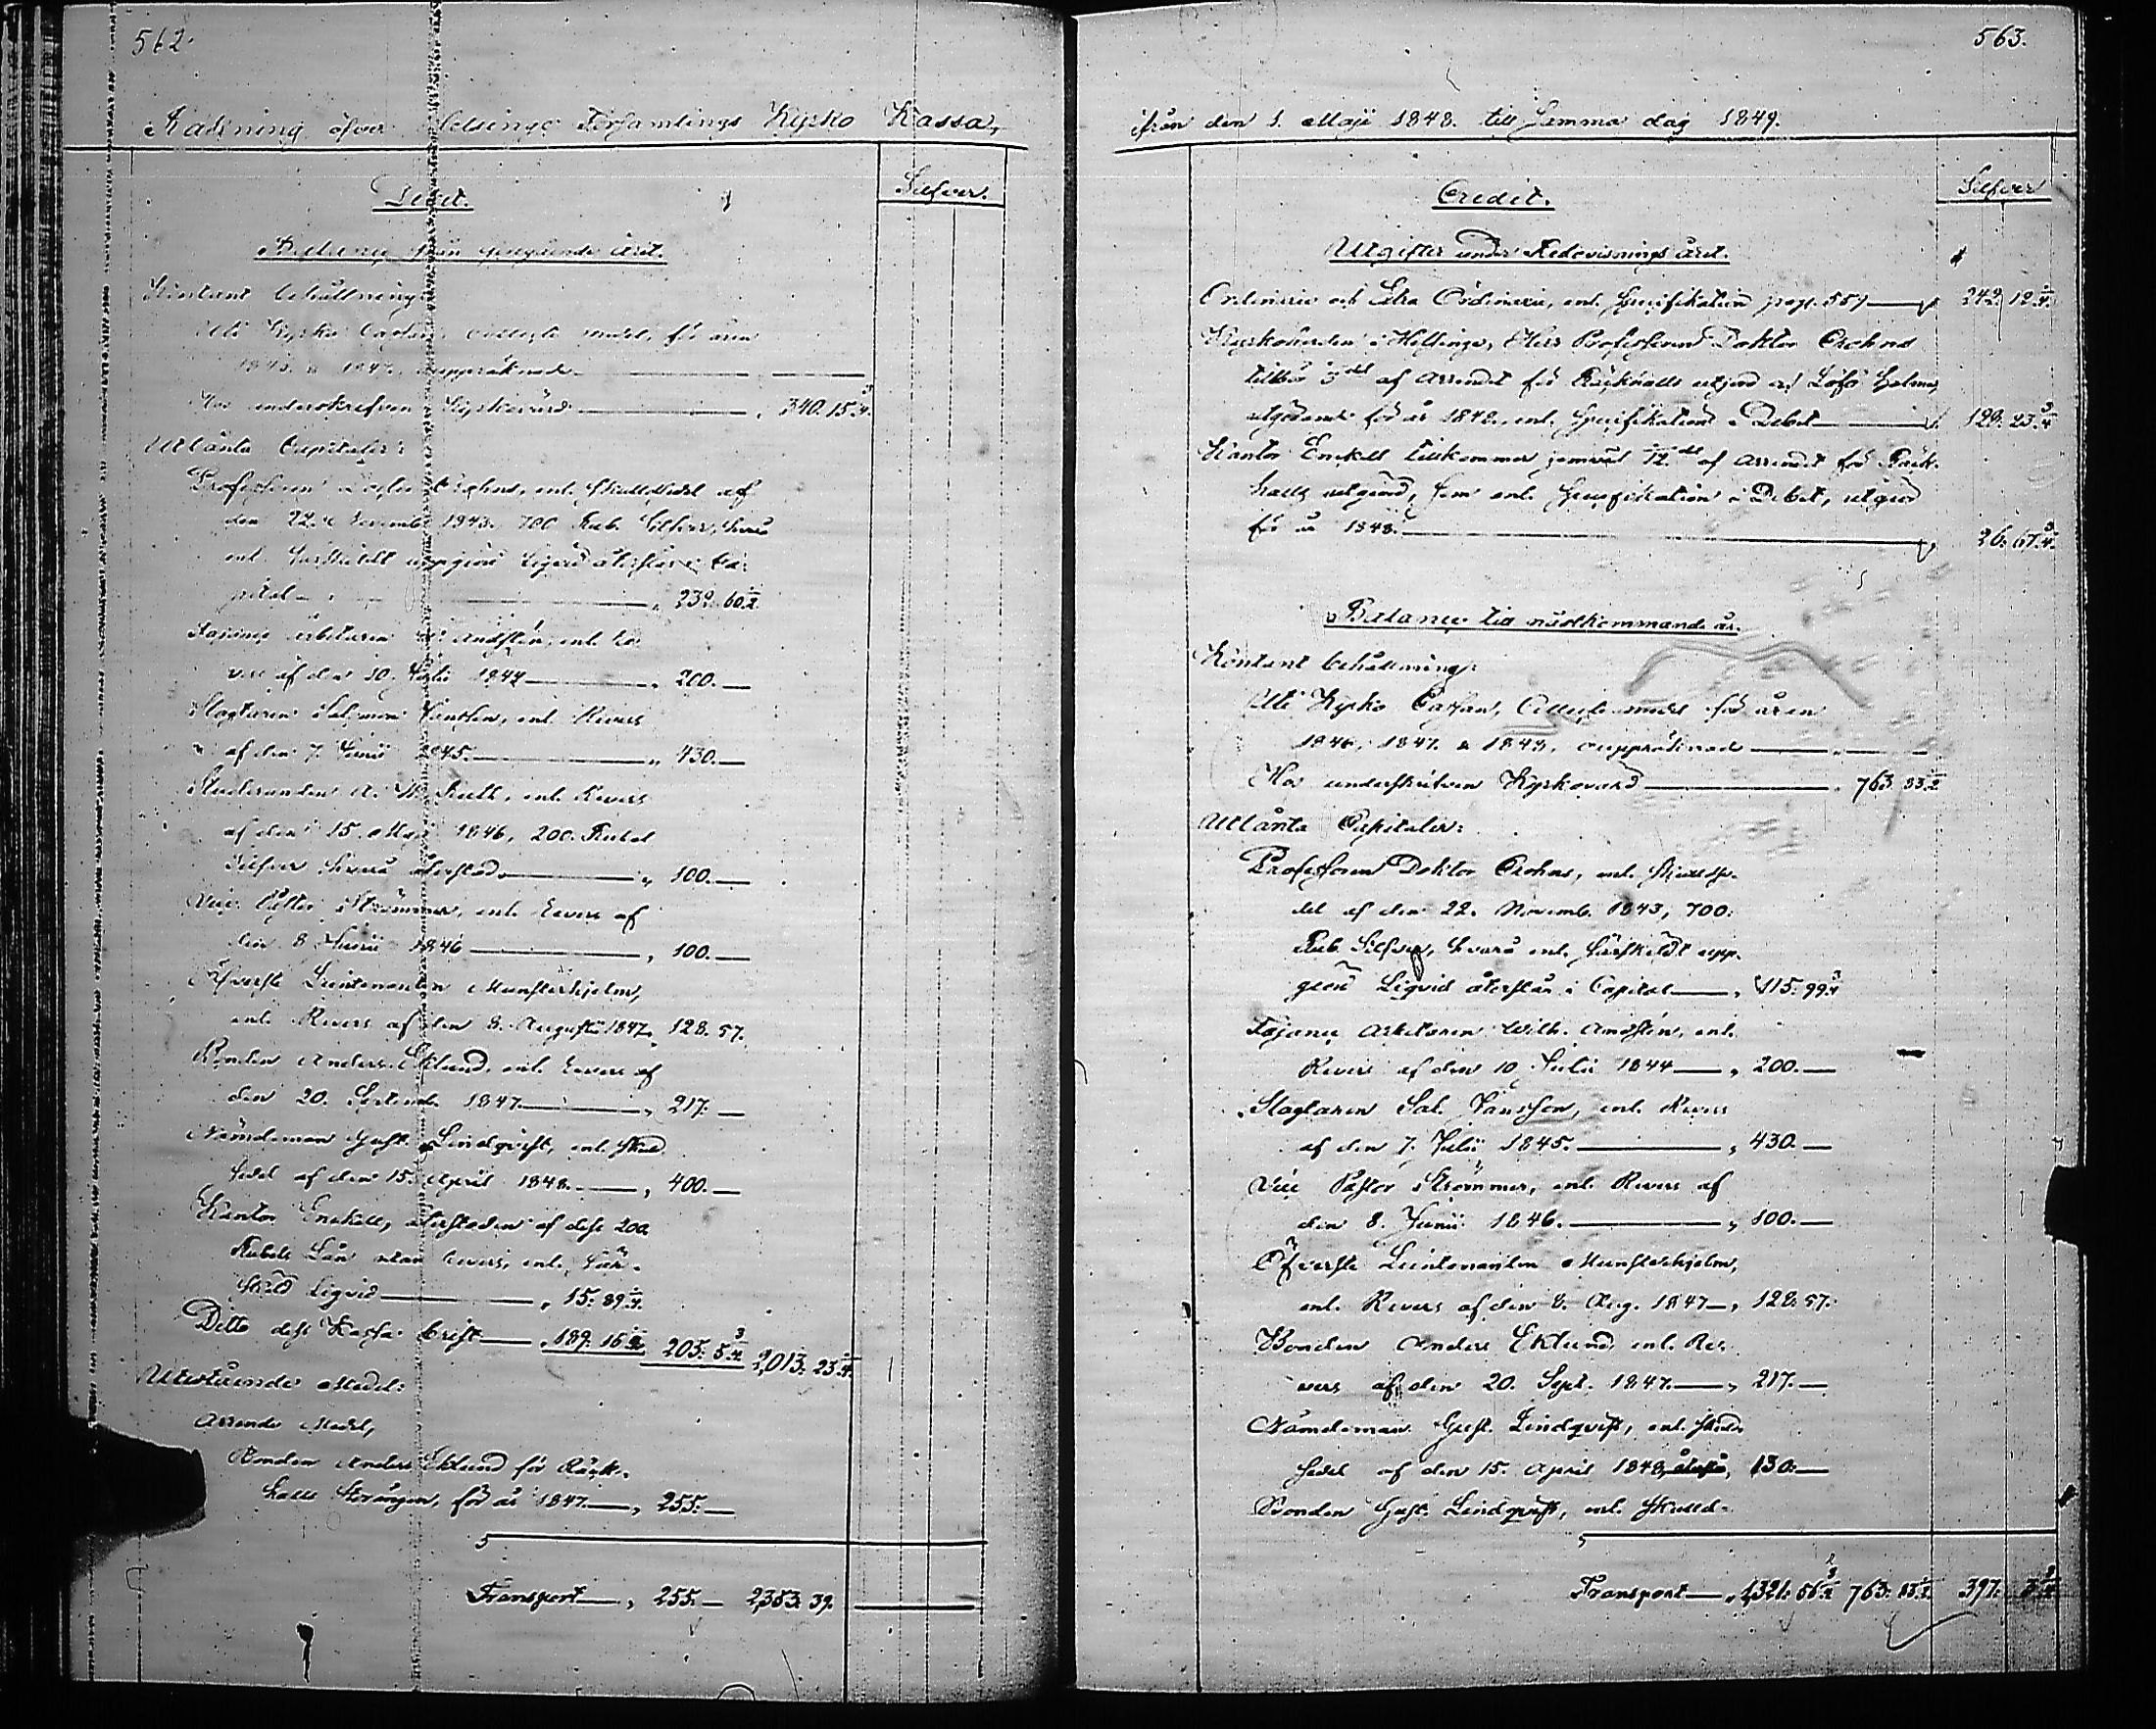 562.
Räkning öfver Helsinge Församlings Kyrko Kassa,
Silfver.
Debet.
Balance från föregående året.
Kontant behållning:
Uti Kyrko Cassan, Collecte medel, för åren
1846 & 1847, ouppräknade
Hos underskrifven Kyrkovärd " 340. 15 3/4.
Utlånta Capitaler:
Professoren Doctor Crohns, enl. Skuldsedel af
den 22. Novemb. 1843. 700 Rub. Silfver, hvaraf
enl. särskildt uppgjord Liqvid återstår i Ca-
pital " 232. 60 1/2.
Fajance arbetaren W. Andstén, enl. Re-
vers af den 10. Julii 1844 " 200. —
Slagtaren Salomon Jansson, enl. Revers
af den 7. Junii 1845. " 430. —
Studeranden A. W. Ruth, enl. Revers
af den 15. Maji 1846, 200. Rubel
Silfver hvaraf återstod " 100. —
Vice Pastor Strömmer, enl. Revers af
den 8. Junii 1846 " 100. —
Öfverste Lieutenanten Munsterhjelm,
enl. Revers af den 8. Augusti 1847 " 128. 57.
Bonden Anders Eklund, enl. Revers af
den 20. Septemb. 1847. " 217. —
Nämndeman Gust. Lindqvist, enl. Skuld-
sedel af den 15. April 1848. " 400. —
Kantor Enckell, återstoden af dess 200
Rubels Lån utan revers, enl. sär-
skild Liqvid " 15. 89 1/4.
Ditto dess Kassa brist " 189. 16 1/2 205. 5 3/4 2,013. 23 1/4.
Utestående Medel:
Arrende Medel,
Bonden Anders Eklund för Räck-
halls Storängen, för år 1847. " 255. —
Transport " 255. — 2,353. 39.
563.
ifrån den 1. Maji 1848. till samma dag 1849.
Silfver
Credit.
Utgifter under Redovisnings året.
Ordinarie och Extra Ordinarie, enl. Specifikation pag. 557 " 242. 12 1/4.
Kyrkoherden i Helsinge, Herr Professoren Doktor Crohns
tillkom af Arrendet för Räckhalls utjord och Löfö holme,
utgörande för år 1848., enl. Specifikation i Debet " 128. 23 3/4
Kantor Enckell tillkommer jemväl 12.del af Arrendet för Räck-
halls utjord, som enl. Specifikation i Debet, utgör
för år 1848. " 26. 67 3/4.
Balance till nästkommande år.
Kontant behållning:
Uti Kyrko Cassan, Collecte medel för åren
1846, 1847. & 1848, ouppräknade
Hos underskrifven Kyrkovärd " 763. 83 1/2
Utlånta Capitaler:
Professoren Doktor Crohns, enl. Skuldse-
del af den 22. Novemb. 1843, 700.
Rub. Silfver, hvaraf enl. särskildt upp-
gjord Liqvid återstår i Capital " 115. 99 3/4
Fajance Arbetaren Wilh. Andstén, enl.
Revers af den 10 Julii 1844 " 200. —
Slagtaren Sal. Jansson, enl. Revers
af den 7. Julii 1845. " 430. —
Vice Pastor Strömmer, enl. Revers af
den 8. Junii 1846. " 100. —
Öfverste Lieutenanten Munsterhjelm,
enl. Revers af den 8. Aug. 1847 " 128. 57.
Bonden Anders Eklund, enl. Re-
vers af den 20. Sept. 1847. " 217. —
Nämndeman Gust. Lindqvist, enl. Skuld-
sedel af den 15. April 1848, återstår, 130. —
Bonden Gust. Lindqvist, enl. Skuld-
Transport " 1,321. 56 3/4 763. 83 1/2. 397. 3 3/4